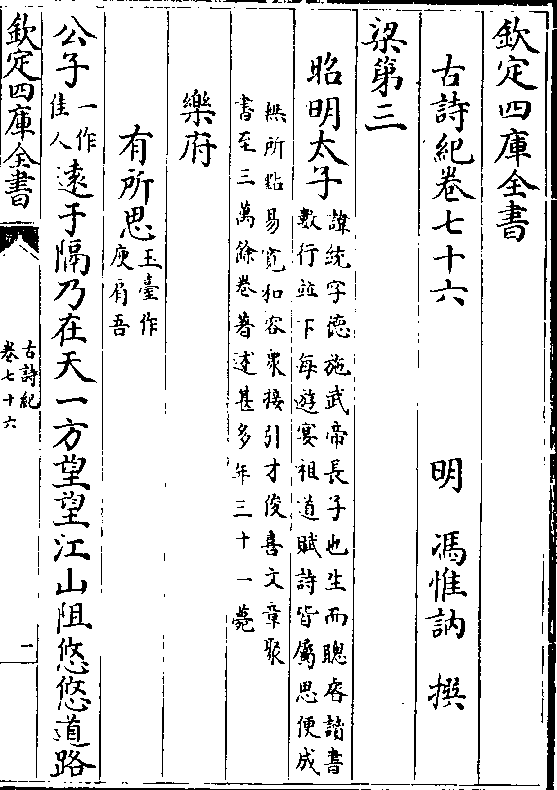 欽定四庫全書
古詩紀卷七十六
明 馮惟訥 撰
梁第三
昭明太子
諱統字德施武帝長子也生而聰睿讀書
數行並下每遊宴祖道賦詩皆屬思便成
無所點易寬和容衆接引才俊喜文章聚
書至三萬餘卷著述甚多年三十一薨
樂府
有所思
玉臺作
庾肩吾
公子
一作
佳人
遠于隔乃在天一方望望江山阻悠悠道路
欽定四庫全書
古詩紀
卷七十六
二